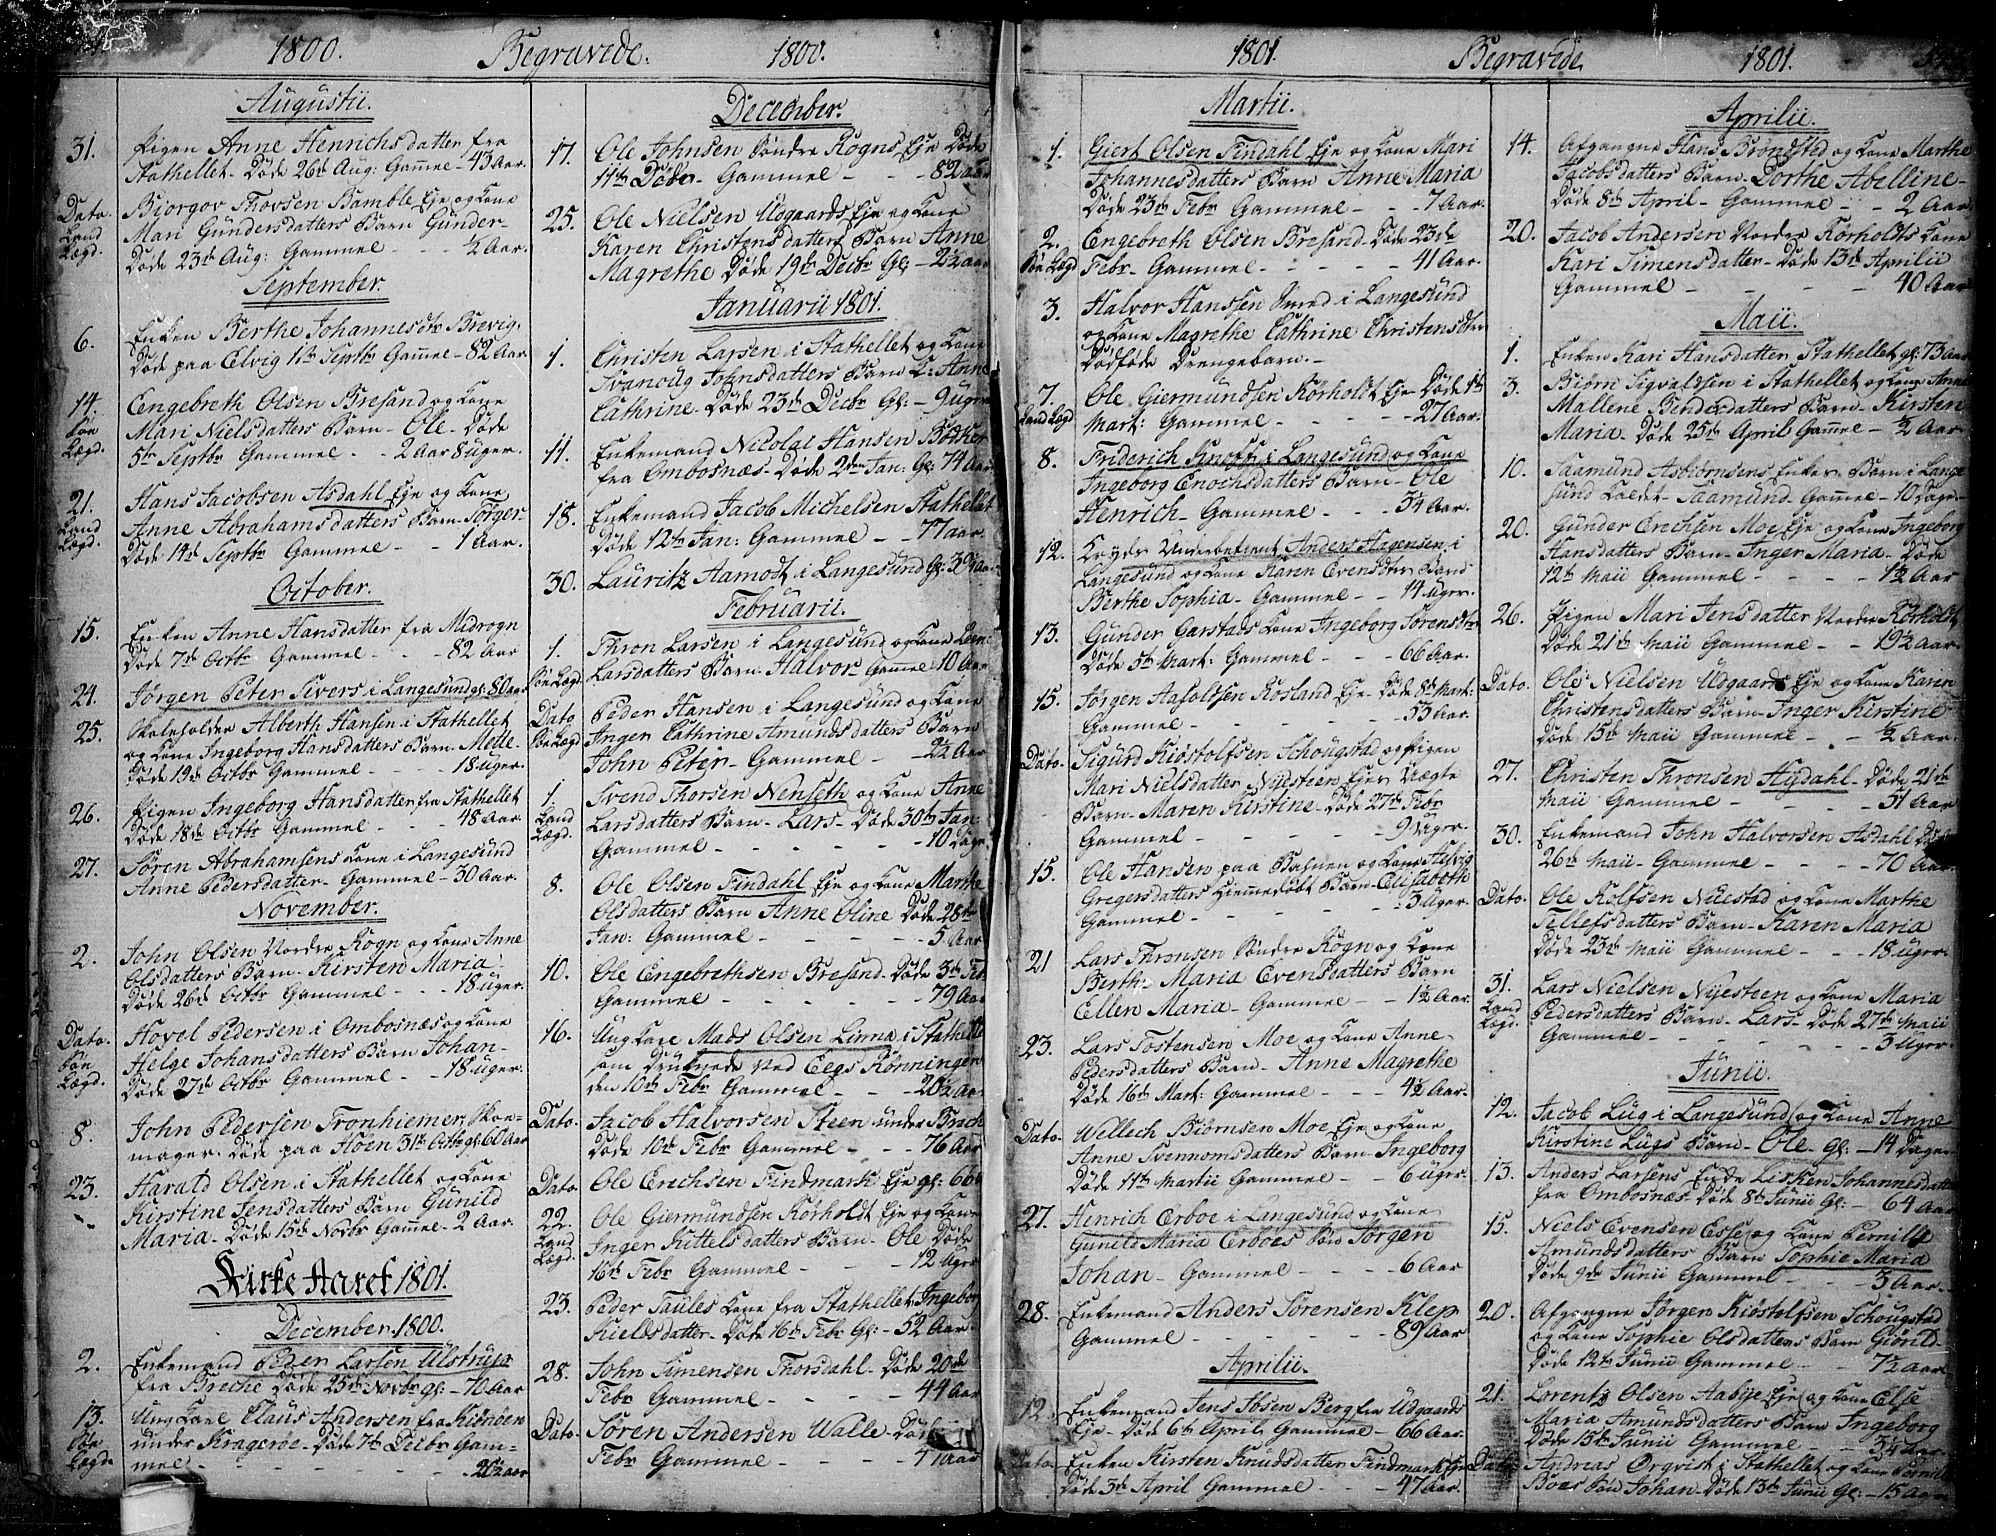 1800. Begravede. 1800.
Augustii.
31. Pigen Anne Henrichsdatter fra
Stathellet - Døde 26de Aug: Gammel - 43 Aar.
Dato. Biorgov Thovsen Bamble Eje og Kone
Land Mari Gündersdatters Barn Günder -
Lægd. Døde 23de Aug: Gammel - - ½ Aar.
September.
6. Enken Berthe Johannesdtr Brevig.
Døde paa Elvig 1ste Septbr Gammel - 82 Aar
14. Engebreth Olsen Bresand og Kone
Søe Mari Nielsdatters Barn - Ole - Døde
Lægd. 5te Septbr Gammel - - 2 Aar 8 uger.
21. Hans Jacobsen Asdahl Eje og Kone
Land Anne Abrahamsdatters Barn - Torger -
Lægd. Døde 14de Septbr Gammel - - 1 Aar.
October.
15. Enken Anne Hansdatter fra Midrogn
Døde 7de Octbr Gammel - - 82 Aar
24. Jørgen Peter Sivers i Langesund gl: 80 Aar
25. Skoleholder Alberth Hansen i Stathellet
og Kone Ingeborg Hansdatters Barn - Mette -
Døde 19de Octbr Gammel - - 18 uger.
26. Pigen Ingeborg Hansdatter fra Stathellet
Døde 18de Octbr Gammel - - 48 Aar.
27. Søren Abrahamsens Kone i Langesünd
Anne Pedersdatter - Gammel - 30 Aar.
November.
2. John Olsen Nordre Rogn og Kone Anne
Olsdatters Barn - Kirsten Maria -
Døde 26de Octbr Gammel - - 18 uger.
Dato. Hovel Pedersen i Ombosnæs og Kone
Søe Helge Johansdatters Barn Johan -
Lægd. Døde 27de Octbr Gammel - - 18 uger.
8. John Pedersen Tronhiemer, Skoe-
mager. Døde paa Høen 31te Octbr gl: 60 Aar
23. Harald Olsen i Stathellet og Kone
Kirstine Jensdatters Barn Günild
Maria - Døde 15de Novbr Gammel - 2 Aar.
Kirke Aaret 1801.
December 1800.
2. Enkemand Peder Larsen Ulstrup
fra Breche Døde 25de Novbr gl: - 70 Aar
13. Ung Karl Claus Andersen fra
Søe under Kragerøe - Døde 7de Decbr Gam-
Lægd. mel - - - 20½ aar
December.
17. Ole Johnsen Søndre Rogns Eje Døde
11te Decbr - Gammel - - - 82 Aar
25. Ole Nielsen Udgaards Eje og Kone
Karen Christensdatters Barn Anne
Magrethe Døde 19de Decbr Gl: - 2½ aar
Januarii 1801.
1. Christen Larsen i Stathellet og Kone
Svanoug Johnsdatters Barn L: Anne
Cathrine - Døde 23de Decbr Gl: - 9 uger
11. Enkemand Nicolai Hansen Bødker
fra Ombosnæs - Døde 2den Jan: Gl: 74 Aar
18. Enkemand Jacob Michelsen Stathellet
Døde 12te Jan: Gammel - - 77 aar.
30. Lauritz Aamodt i Langesund Gl: 30½ Aar
Februarii.
1. Thron Larsen i Langesund og Kone
Søe Lægd Larsdatters Barn - Halvor - Gammel 10 Aar
Dato Peder Hansen i Langesund og Kone
Søe Lægd. Inger Cathrine Amundsdatters Barn
John Peter - Gammel - - 2½ Aar
1. Svend Thorsen Nenseth og Kone Anne
Land Larsdatters Barn - Lars - Døde 30te Jan -
Lægd. Gammel - - - 10 Dage
8. Ole Olsen Findahl Eje og Kone Marthe
Olsdatters Barn Anne Oline Døde 28de
Jan: Gammel - - - 5 Aar
10. Ole Engebrethsen Bresand - Døde 3de Feb
Gammel - - - 79 Aar
16. Ung Karl Mads Olsen Linna i Stathelle
som Druknede ved Eegs Rönningen
den 10de Febr Gammel - - 20½ Aar
Dato. Jacob Halvorsen Steen under
Døde 10de Febr Gammel - - 76 Aar
Dato Ole Erichsen Findmark Eje gl: 66
22. Ole Giermundsen Kørholdt Eje og Kone
Land Inger Kittelsdatters Barn - Ole Døde
Lægd. 16de Febr Gammel - - - 12 Uger
23. Peder Taules Kone fra Stathellet, Ingeborg
Kieldsdatter - Døde 16de Febr Gl: - 52 Aar.
28. John Simensen Thorsdahl - Døde 20de
Febr Gammel - - - 44 Aar
Dato. Søren Andersen Walle - Døde
Febr Gammel - - - Aar
1801. Begravede 1801.
Martii.
1. Giert Olsen Findahl Eje og Kone Mari
Johannesdatters Barn Anne Maria
Døde 23de Febr Gammel - - 7 Aar.
2. Engebreth Olsen Bresand - Døde 23de
Søe Lægd Febr - Gammel - - - 41 Aar.
3. Halvor Hanssen Smed i Langesünd
og Kone Magrethe Cathrine Christensdtr
Dødføde Drengebarn. -
7. Ole Giermundsen Kørholt Eje Døde 1ste
Land Lægd Mart: Gammel - - - 27 Aar.
8. Friderich Knoph i Langesünd og Kone
Ingeborg Enochsdatters Barn - Ole
Henrich - Gammel - - - 5¼ Aar.
12. Krigds Underbetient Anders Hagensen i
Langesund og Kone Karen Evensdtrs Barn
Berthe Sophia - Gammel - - 14 uger.
13. Günder Garstads Kone Ingeborg Sørensdtr
Døde 5te Mart: Gammel - - - 66 Aar.
15. Jørgen Aasoldsen Rosland Eje - Døde 8de Mart:
Gammel - - - 53 Aar.
Dato. Sigurd Kiøstolfsen Schougstad og Pigen
Mari Nielsdatter Nyesteen Ejes Uægte
Barn - Maren Kirstine - Døde 27de Febr
Gammel - - - 9 uger.
15. Ole Hansen paa og Kone
Gregersdatters Hiemmedøbt Barn - Elisabeth
Gammel - - - 3 Uger.
21 Lars Thronsen Søndre Rogn og Kone
Berthe Maria Evensdatters Barn
Ellen Maria - Gammel - - 1½ Aar.
23. Lars Tostensen Moe og Kone Anne
Pedersdatters Barn - Anne Magrethe
Døde 16de Mart: Gammel - - 4½ Aar.
Dato. Wellech Biørnsen Moe Eje og Kone
Anne Svennomsdatters Barn - Ingeborg
Døde 11te Martii Gammel - - 6 uger.
27. Henrich Erboe i Langesünd og Kone
Gunild Maria Erboes Søn Jørgen
Johan - Gammel - - - 6 Aar
28. Enkemand Anders Sørensen Klep
Gammel - - - 89 Aar
Aprilii.
12. Enkemand Jens Ibsen Berg fra Udgaards
Eje - Døde 6te April Gammel - - 66 Aar.
Dato. Enken Kirsten Knudsdatter Findmark Eje
Døde 3de April Gammel - - - 47 Aar.
Aprilii.
14. Afgangne Hans Brøndsted og Kone Marthe
Jacobsdatters Barn - Dorthe Abelline -
Døde 8de April - Gammel - - 2 Aar.
20. Jacob Andersen Nordre Kørholts Kone
Kari Simensdatter - Døde 13de Aprilii
Gammel - - - 40 Aar
Maii.
1. Enken Kari Hansdatter Stathellet gl: 73 Aar
3. Biørn Sigvaldsen i Stathellet og Kone Anne
Mallene Bendixdatters Barn - Kirsten
Maria - Døde 25de April Gammel - ½ Aar.
10. Saamund Asbiørnsens Enkes Barn i Lange
sünd Kaldet - Saamund - Gammel - 10 Dage -
20. Günder Erichsen Moe Eje og Kone Ingeborg
Hansdatters Barn - Inger Maria - Døde
12te Maii Gammel - - - 1½ Aar
26. Pigen Mari Jensdatter Nordre Kørholt
Døde 21de Maii Gammel - - 19½ Aar.
Dato. Ole Nielsen Udgaards Eje og Kone Karen
Christensdatters Barn - Inger Kirstine
Døde 15de Maii Gammel - - ½ Aar.
27. Christen Thronsen Hydahl - Døde 21de
Maii Gammel - - - 51 Aar
30. Enkemand John Halvorsen Asdahl Døde
26de Maii - Gammel - - - 70 Aar.
Dato. Ole Rolfsen Nuestad og Kone Marthe
Tellefsdatters Barn - Karen Maria
Døde 23de Maii Gammel - - - 18 uger.
31. Lars Nielsen Nyesteen og Kone Maria
Land Pedersdatters Barn - Lars - Døde 27de Maii
Lægd. Gammel - - - 3 Uger.
Junii.
12. Jacob Lüg i Langesünd og Kone Anne
Kirstine Lügs Barn - Ole - gl: - 14 Dage
13. Anders Larsens Enke Lisken Johannesdatter
fra Ombosnæs - Døde 8de Junii Gl: - 64 Aar
15. Niels Evensen Esse og Kone Pernille
Amundsdatters Barn Sophie Maria
Døde 9de Junii Gammel - - 3 Aar.
20. Afgangne Jørgen Kiøstolfsen Schougstad
og Kone Sophie Olsdatters Barn Giønild
Døde 12te Junii Gammel - - 7½ Aar
21. Lorentz Olsen Aabye Eje og Kone Else
Maria Amundsdatters Barn Ingeborg
Døde 15de Junii Gammel - - 3¼ Aar.
Dato Andreas Ørqvist i Stathellet og Kone Pernille
Boes Søn Johan - Døde 13de Junii Gl: - 15 Aar